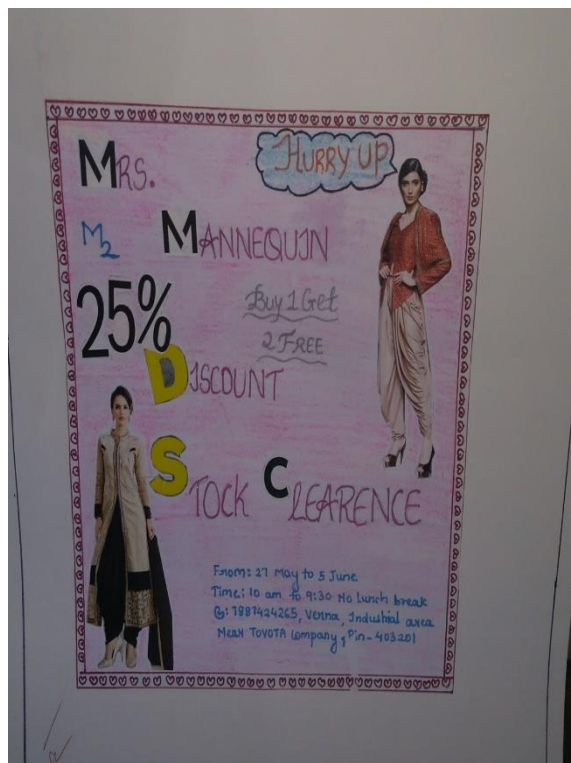 MRS.
HURRY UP
M2 MANNEQUIN
25%
Buy 1 Get
2 FREE
DISCOUNT
STOCK CLEARENCE
From: 27 May to 5 June
Time: 10 am to 9:30 No Lunch break
@: 7887424265, Verna, Industrial area
Near TOYOTA Company, Pin-403201